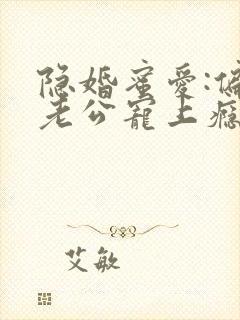 隐婚蜜爱:偏
老公寵上瘾
艾敏